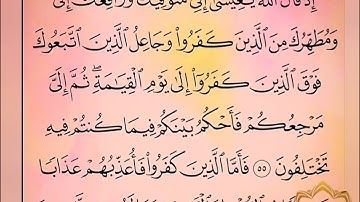 إِذْ قَالَ ٱللَّهُ يَـٰعِيسَىٰٓ إِنِّى مُتَوَفِّيكَ وَرَافِعُكَ إِلَىَّ
وَمُطَهِّرُكَ مِنَ ٱلَّذِينَ كَفَرُوا۟ وَجَاعِلُ ٱلَّذِينَ ٱتَّبَعُوكَ
فَوْقَ ٱلَّذِينَ كَفَرُوٓا۟ إِلَىٰ يَوْمِ ٱلْقِيَـٰمَةِ ۖ ثُمَّ إِلَىَّ
مَرْجِعُكُمْ فَأَحْكُمُ بَيْنَكُمْ فِيمَا كُنتُمْ فِيهِ
تَخْتَلِفُونَ ٥٥ فَأَمَّا ٱلَّذِينَ كَفَرُوا۟ فَأُعَذِّبُهُمْ عَذَابًا